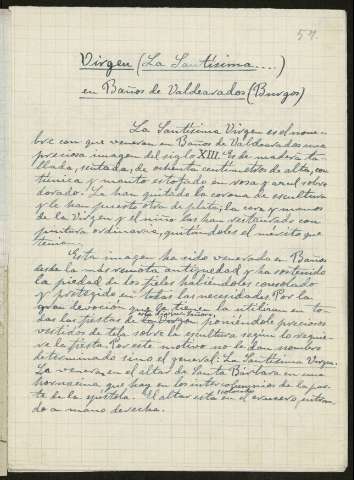 54.
Virgen (La Santísima....)
en Baños de Valdearados (Burgos)
La Santísima Virgen es el nom-
bre con que veneran en Baños de Valdearados una
preciosa imagen del siglo XIII. Es de madera ta-
llada, sentada, de ochenta centímetros de alta, con
túnica y manto estofado en rosa y azul sobre
dorado. La han quitado la corona de escultura
y le han puesto otra de plata; la cara y manos
de la Virgen y el niño las han restaurado con
pintura ordinaria, quitándoles el mérito que
tenían.
Esta imagen ha sido venerada en Baños
desde la más remota antigüedad y ha sostenido
la piedad de los fieles habiéndoles consolado
y protegido en todas las necesidades. Por la
gran devoción que la tienen la utilizan en to-
das las fiestas de la Virgen poniéndole preciosos
vestidos de tela sobre la escultura según lo requie-
re la fiesta. Por este motivo no le dan nombre
determinado sino el general: La Santísima Virgen.
La veneran en el altar de Santa Bárbara en una
hornacina que hay en los intercolumnios de la par-
te de la epístola. El altar está en el crucero, entran-
do a mano derecha.